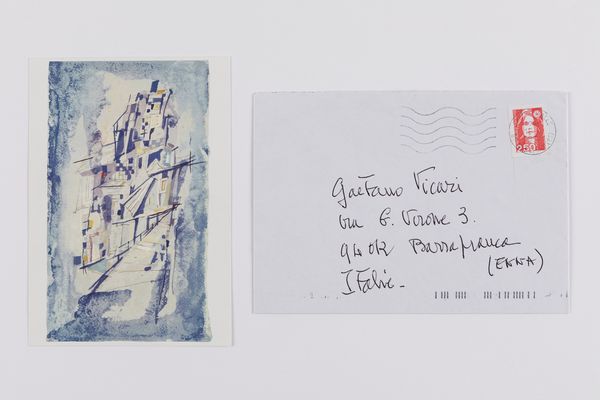 2,50
Gaetano Vicari
via G. Verone 3.
94012 Barrafranca
(ENNA)
Italie.